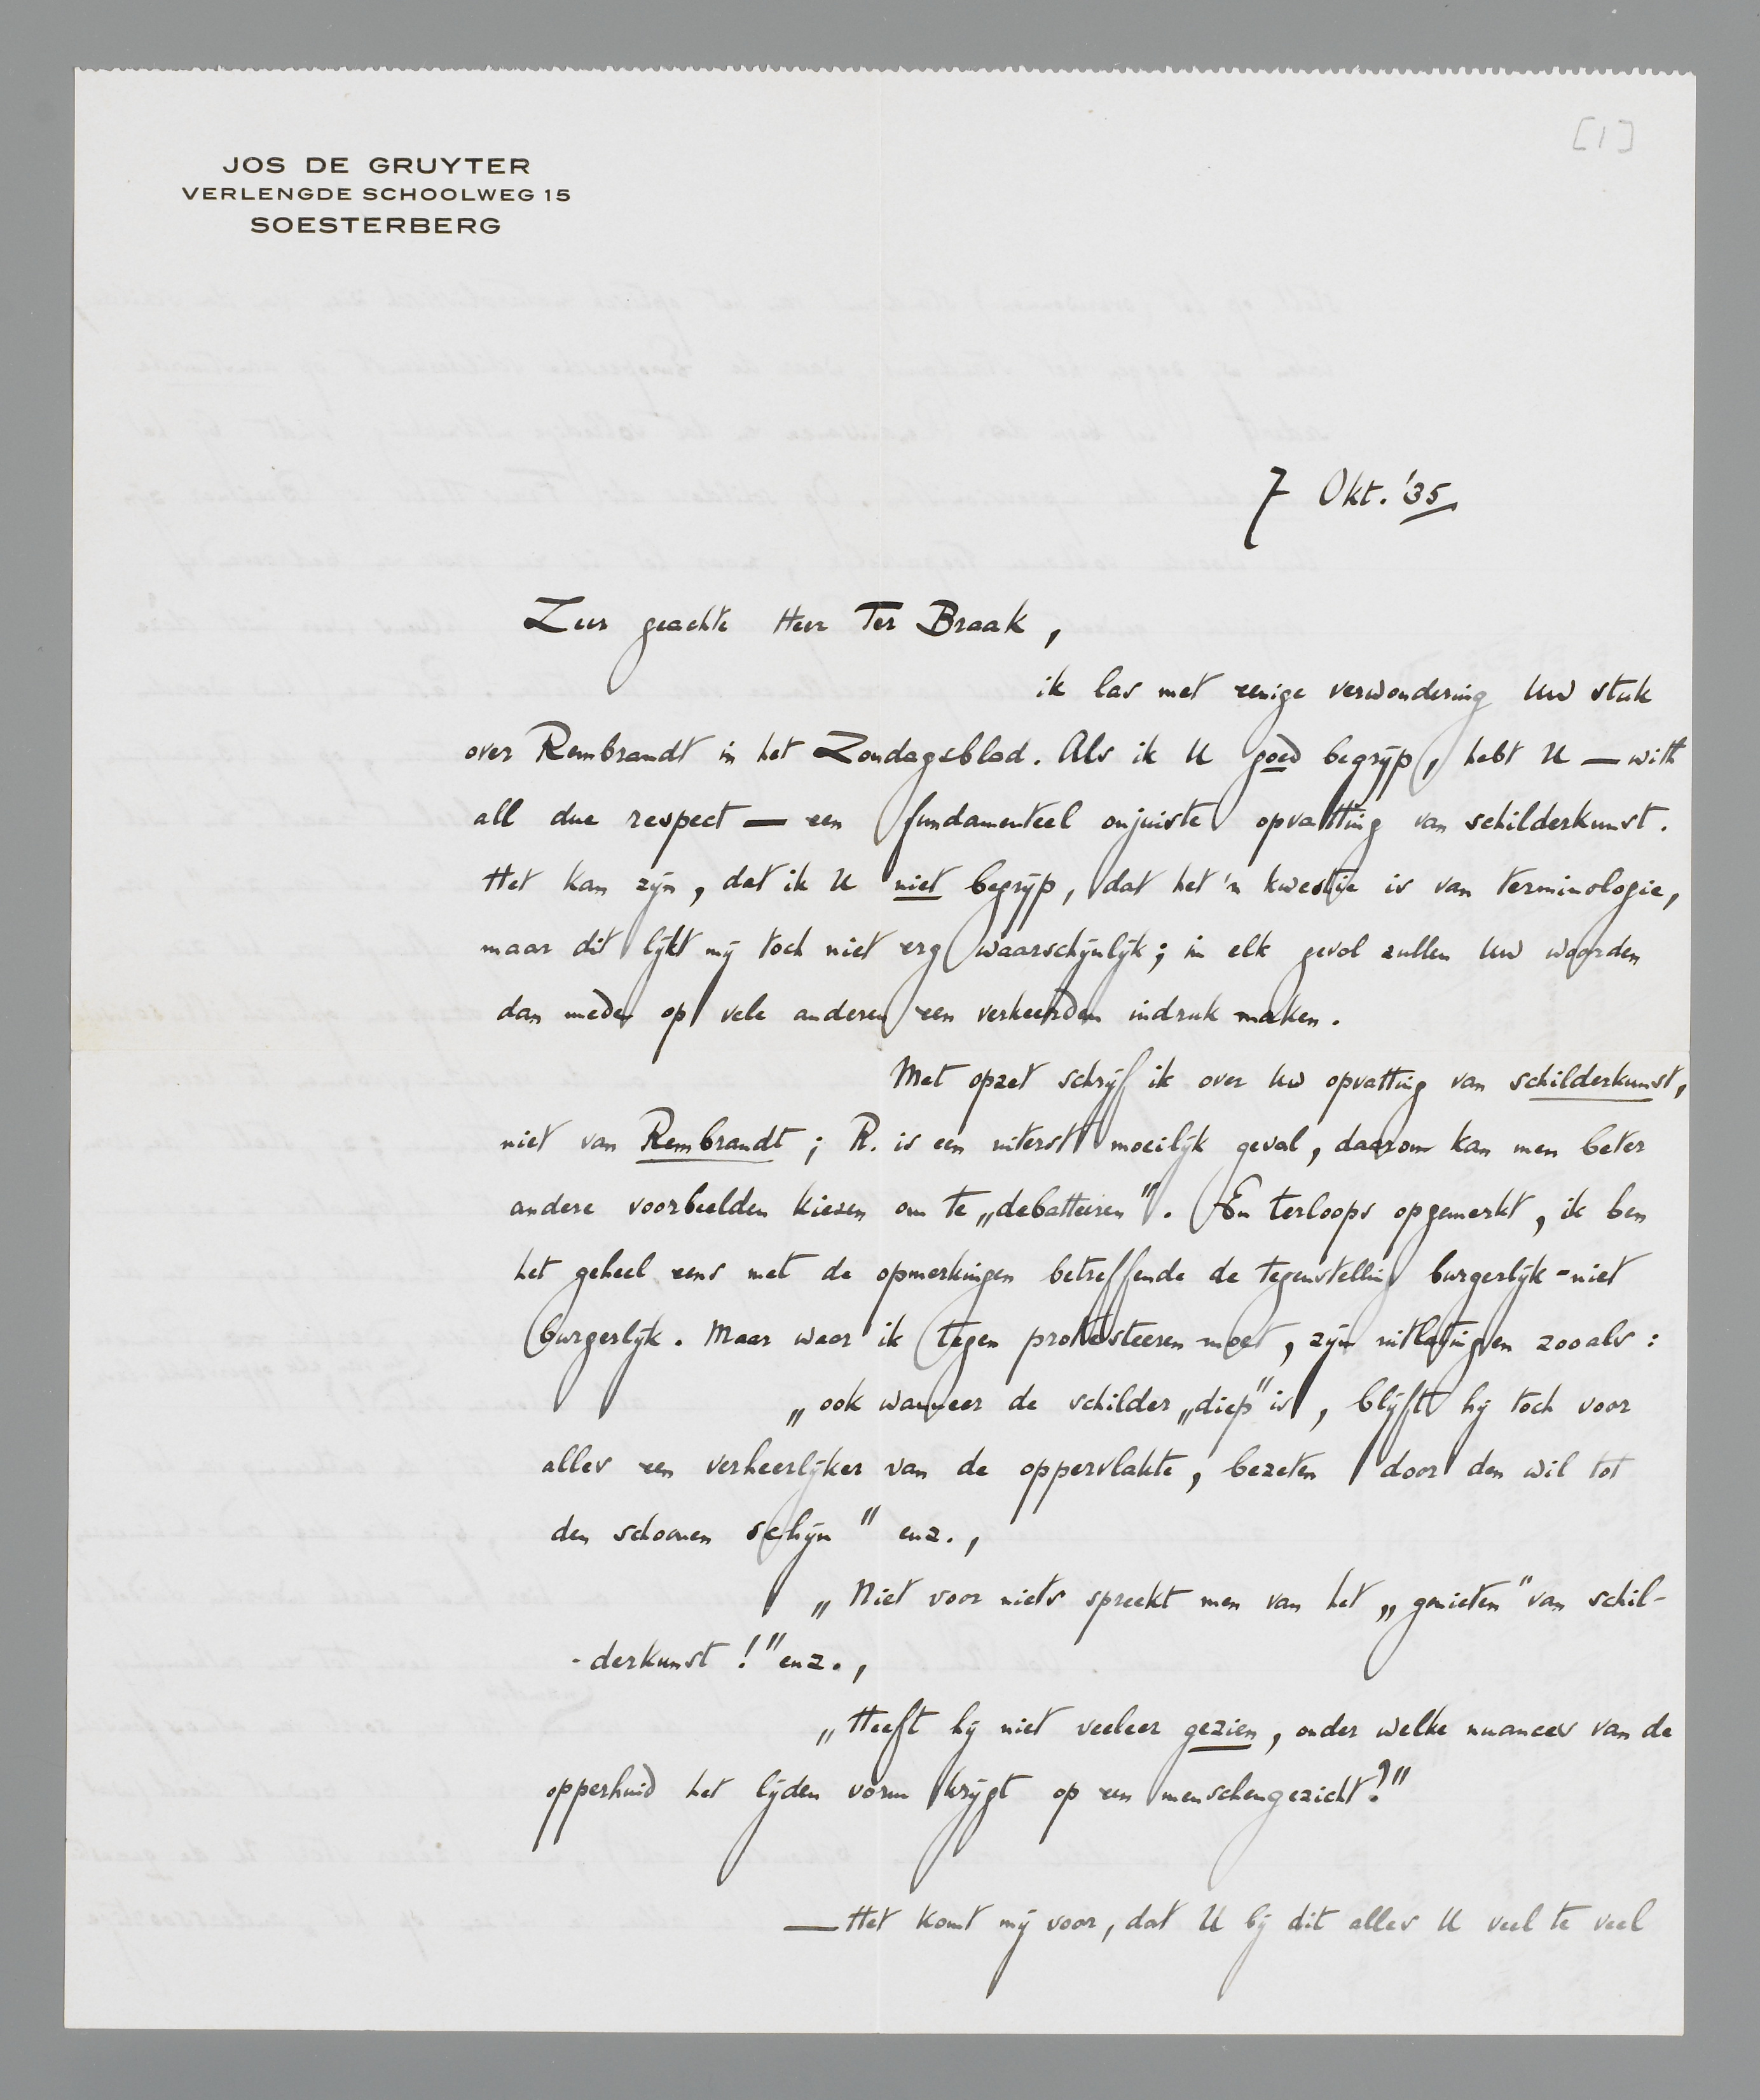 [1]
JOS DE GRUYTER
VERLENGDE SCHOOLWEG 15
SOESTERBERG
7 Okt. '35
Zeer geachte Heer Ter Braak,
ik las met eenige verwondering Uw stuk
over Rembrandt in het Zondagsblad. Als ik U goed begrijp, hebt U — with
all due respect — een fundamenteel onjuiste opvatting van schilderkunst.
Het kan zijn, dat ik U niet begrijp, dat het 'n kwestie is van terminologie,
maar dit lijkt mij toch niet erg waarschijnlijk; in elk geval zullen Uw woorden
dan mede op vele anderen een verkeerden indruk maken.
Met opzet schrijf ik over Uw opvatting van schilderkunst,
niet van Rembrandt; R. is een uiterst moeilijk geval, daarom kan men beter
andere voorbeelden kiezen om te „debatteeren". En terloops opgemerkt, ik ben
het geheel eens met de opmerkingen betreffende de tegenstelling burgerlijk-niet
burgerlijk. Maar waar ik tegen protesteeren moet, zijn uitlatingen zooals:
„ook wanneer de schilder „diep" is, blijft hij toch voor
alles een verheerlijker van de oppervlakte, bezeten door den wil tot
den schoonen schijn" enz.,
„Niet voor niets spreekt men van het „genieten" van schil-
-derkunst!" enz.,
„Heeft hij niet veeleer gezien, onder welke nuances van de
opperhuid het lijden vorm krijgt op een menschengezicht?"
— Het komt mij voor, dat U bij dit alles U veel te veel